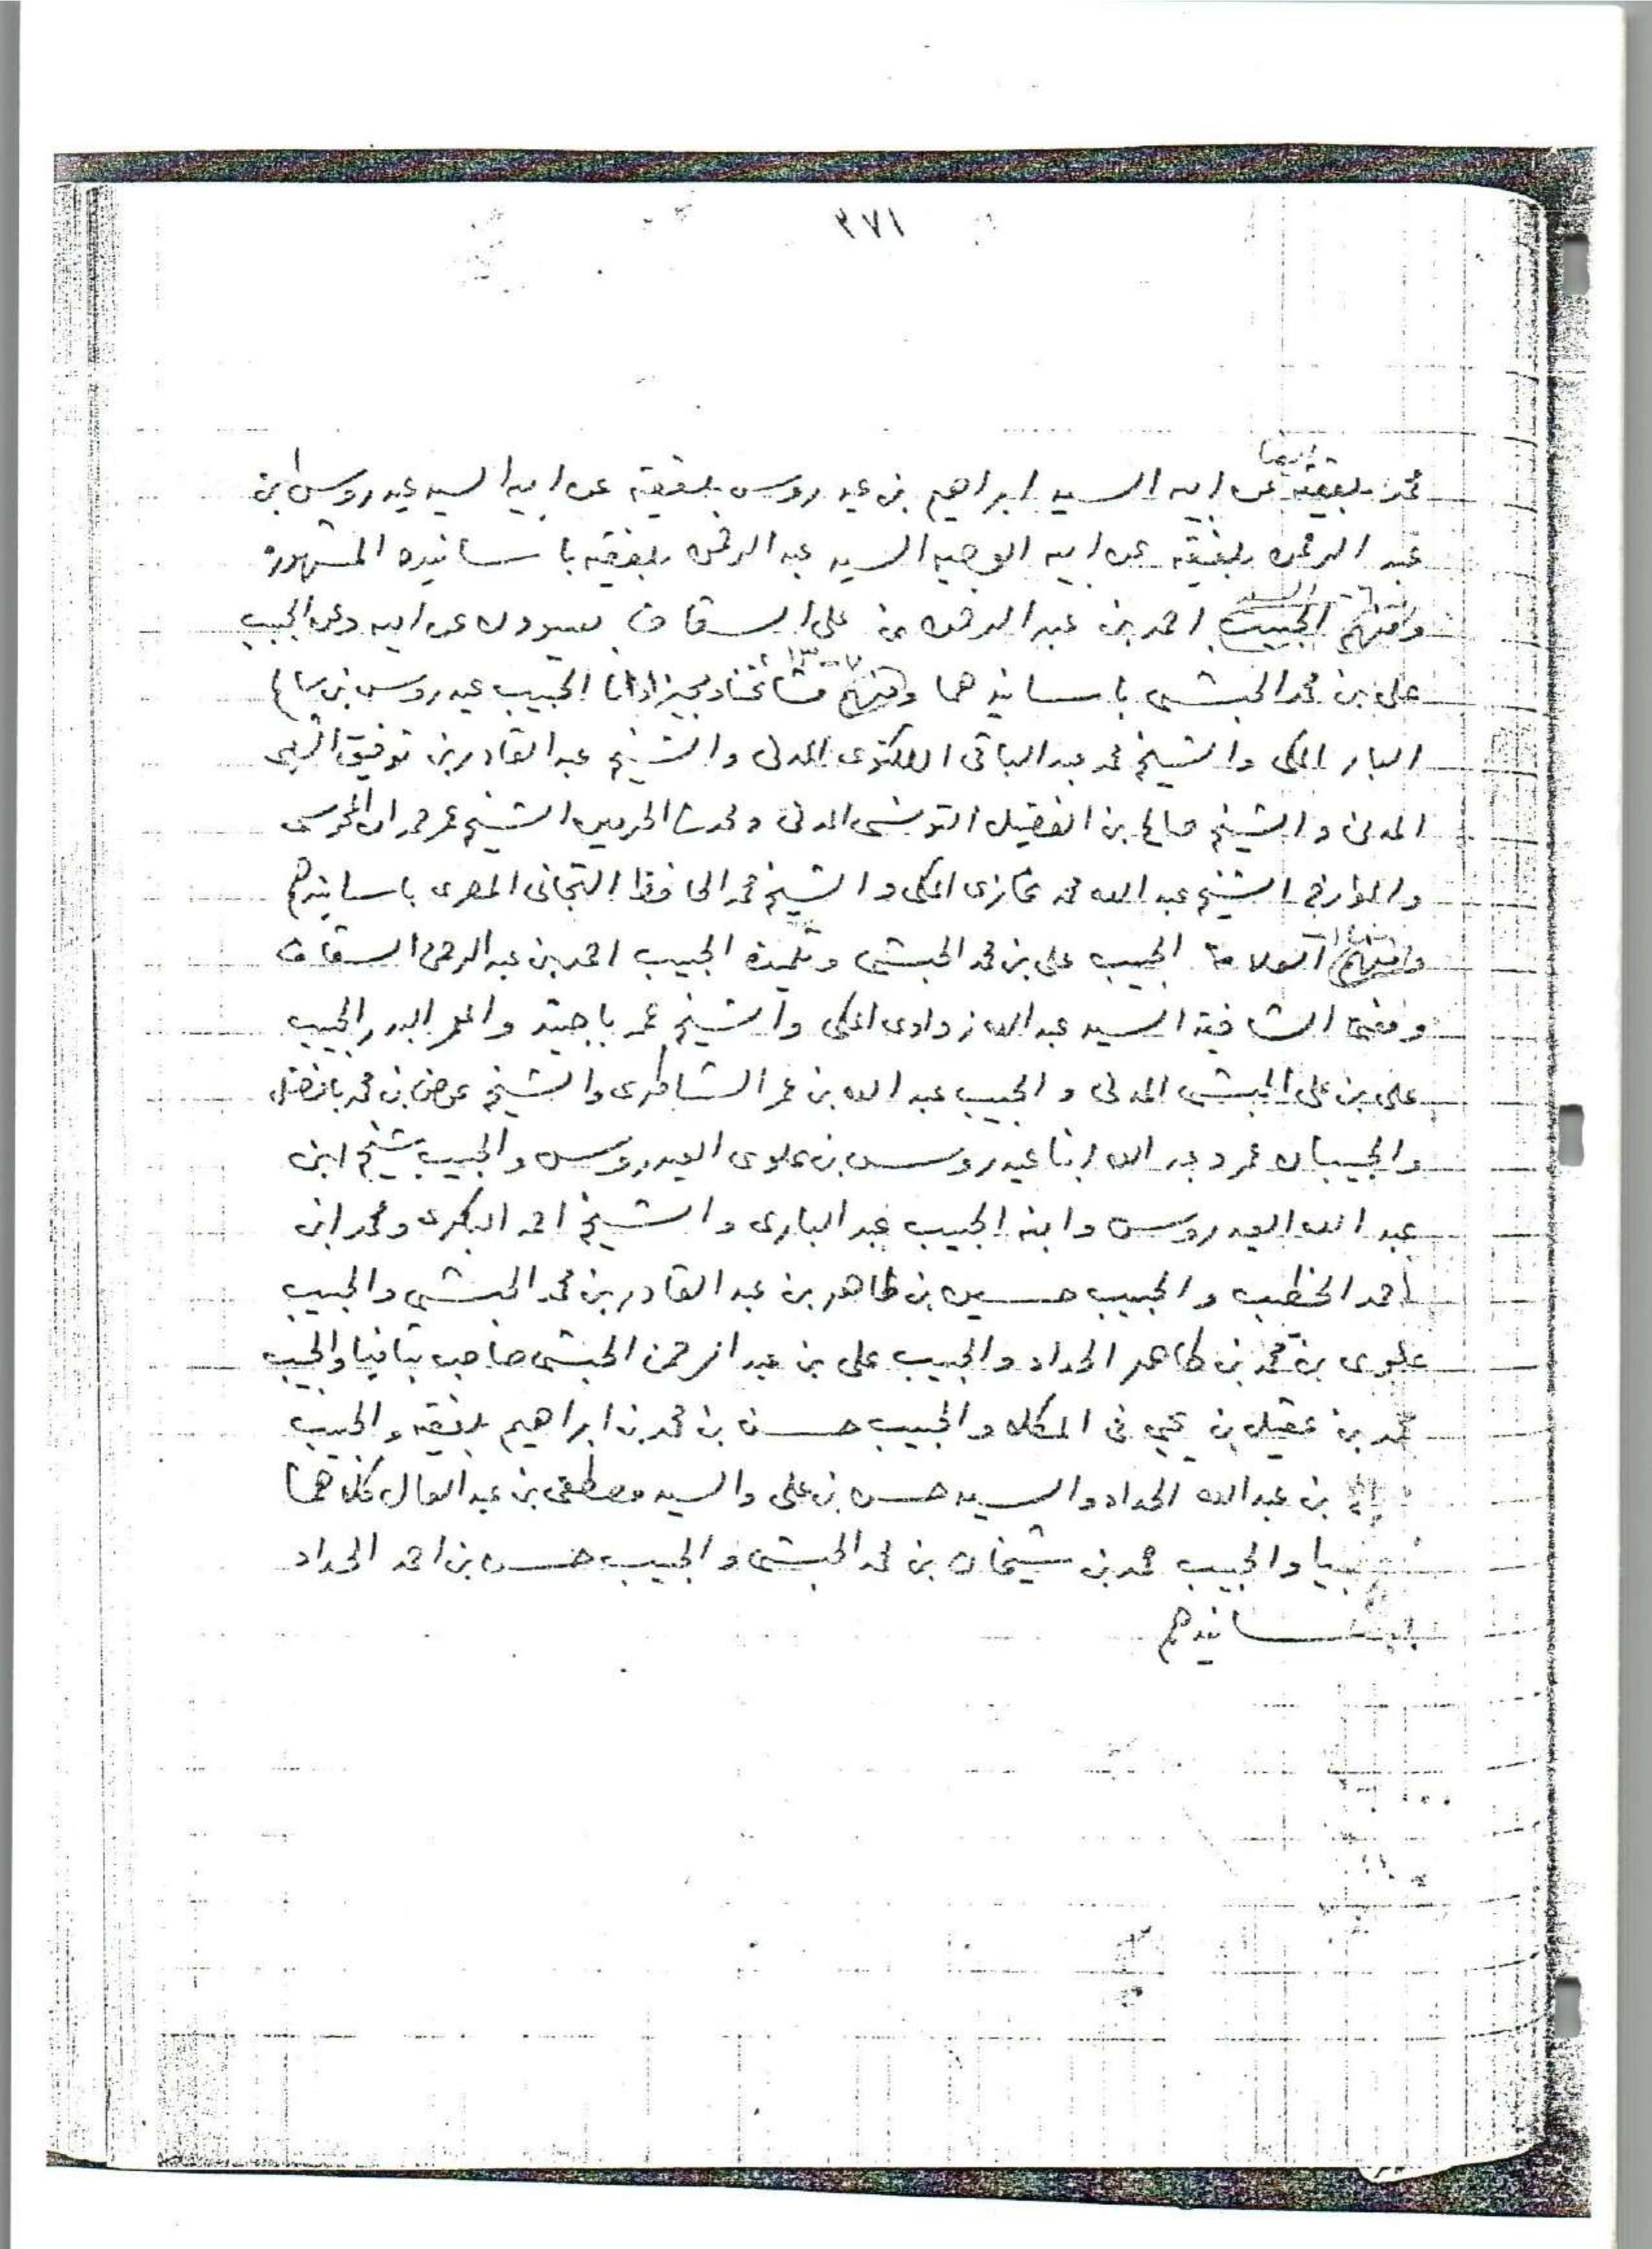 ٣٧١
ايضا
محمد بلفقيه عن ابيه السيد ابراهيم بن عيدروس بلفقيه عن ابيه السيد عيدروس ابن
عبد الرحمن بلفقيه عن ابيه الوجيه السيد عبد الرحمن بلفقيه با سانيده المشهورة
السيد
ومنهم الحبيب احمد بن عبد الرحمن بن علي السقاف بسيوون عن ابيه وعن الحبيب
علي بن محمد الحبشي باسانيدهما ومنهم مشائخنا الحبيب عيدروس بن سالم
البار المكي والشيخ محمد عبد الباقي اللكنوي المدني والشيخ عبد القادر بن توفيق الشلبي
المدني والشيخ صالح بن الفضيل التونسي المدني ومحدث الحرمين الشيخ عمر حمدان المحرسي
والمؤرخ الشيخ عبد الله محمد غازي المكي والشيخ محمد الحافظ التجاني المصري باسانيدهم
ومنهم الحبيب علي بن محمد الحبشي وتلميذه الحبيب احمد بن عبد الرحمن السقاف
ومفتي الشافعية السيد عبد الله زواوي المكي والشيخ عمر باجنيد والحبيب
علي بن علي الحبشي المدني والحبيب عبد الله بن عمر الشاطري والشيخ عوض بن محمد بافضل
والحبيبان عمر وعبد الله ابنا عيدروس بن علوي العيدروس والحبيب شيخ ابن
عبد الله العيدروس وابنه الحبيب عبد الباري والشيخ احمد البكري ومحمد ابن
احمد الخطيب والحبيب حسين بن طاهر بن عبد القادر بن محمد الحبشي والحبيب
علوي بن محمد بن طاهر الحداد والحبيب علي بن عبد الرحمن الحبشي صاحب بتافيا والحبيب
محمد بن عقيل بن يحيى في المكلا والحبيب حسن بن محمد بن ابراهيم بلفقيه والحبيب
بن عبد الله الحداد والسيد حسن بن علي والسيد مصطفى بن عبد العال كلاهما
والحبيب محمد بن شيخان بن محمد الحبشي والحبيب حسن بن احمد الحداد
باسانيدهم